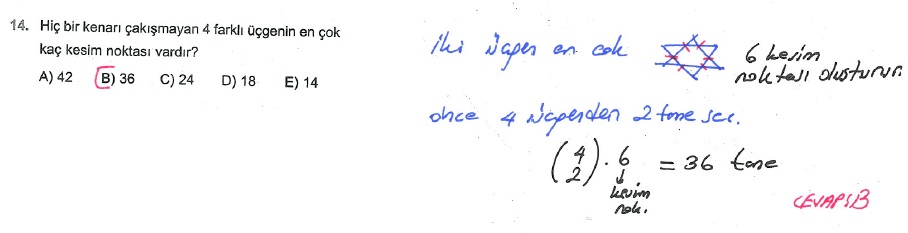 14. Hiç bir kenarı çakışmayan 4 farklı üçgenin en çok
kaç kesim noktası vardır?
A) 42 B) 36 C) 24 D) 18 E) 14
İki üçgen en çok
6 kesim
noktası oluşturur
önce 4 üçgenden 2 tane seç.
(4 2) . 6 = 36 tane
↓
kesim
nok.
CEVAP:B